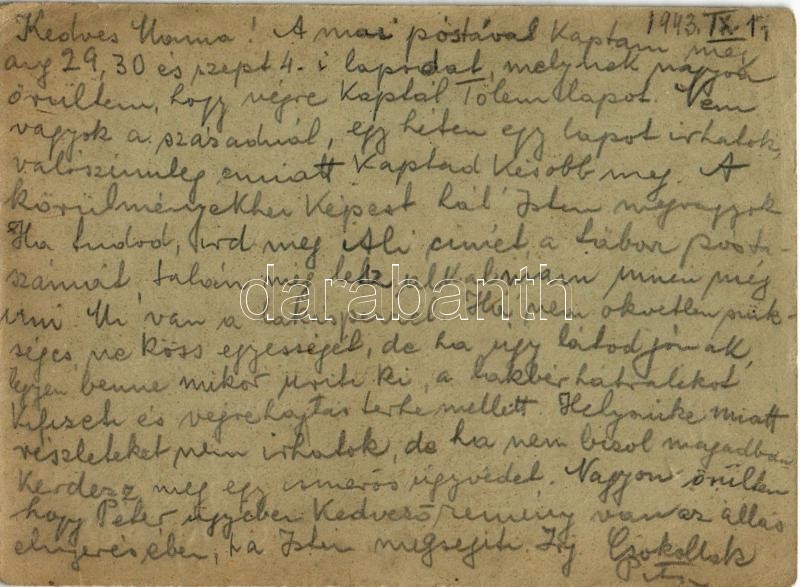 1943. IX. 1
Kedves Mama! A mai postával kaptam meg
aug 29, 30 és szept 4.-i lapodat, melynek nagyon
örültem, hogy végre kaptál Tőlem lapot. Nem
vagyok a századnál, egy héten egy lapot irhatok,
valószinüleg emiatt kaptad később meg. A
körülményekhez képest hál' Isten megvagyok
Ha tudod, ird meg Ali cimét, a tábor posta-
számát, talán még lesz alkalmam innen még
irni. Mi van a lakásperrel. Ha nem okvetlen szük-
séges, ne köss egyességet, de ha úgy látod jónak,
legyen benne mikor üriti ki, a lakbérhátralékot
kifizeti és végrehajtás terhe mellett. Helyszüke miatt
részleteket nem irhatok, de ha nem bizol magadban
kérdezz meg egy ismerős ügyvédet. Nagyon örültem
hogy Péter ügyében kedvező remény van az állás
elnyerésében, ha Isten megsegiti. Irj Csókollak
darabanth